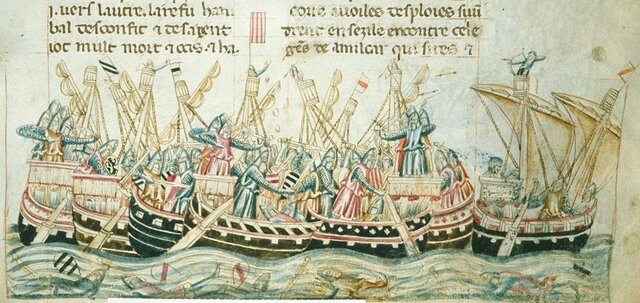 uers lautre. la refu han
bal desconfit ⁊ de sa gent
iot mult mort ⁊ ocis. ⁊ ha
cons a uoiles desploies
drent en sezile encontre cele
ges de amilcar qui sires ⁊